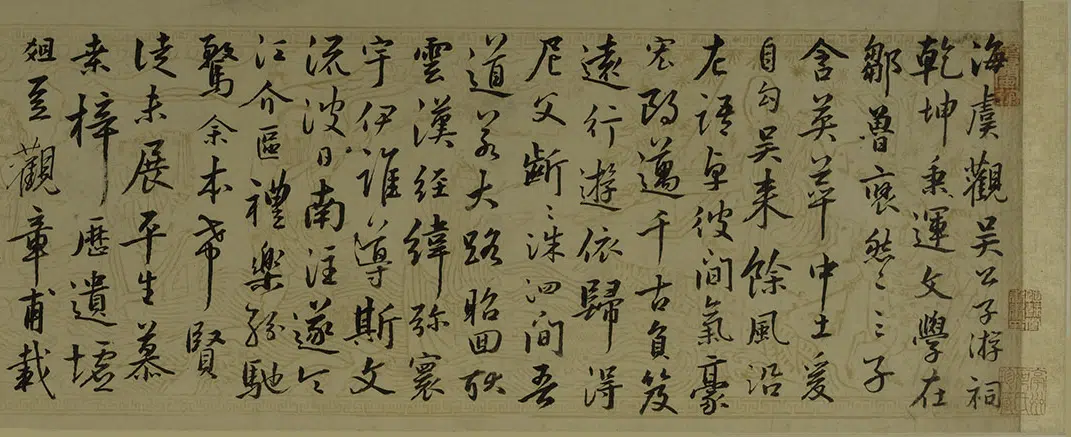 海虞觀吳公子游祠
乾坤秉運文學在
鄒魯裒然二三子
含英萃中土爰
自勾吳來餘風沿
左語卓彼間氣豪
邁千古負笈
遠行遊依歸得
尼父齗〻洙泗間吾
道若大路昭回耿
雲漢經緯弥寰
宇伊誰導斯文
流波日南注遂令
江介區禮樂紛馳
騖余本希賢
徒未展平生慕
桒梓歷遺墟
爼豆觀章甫載